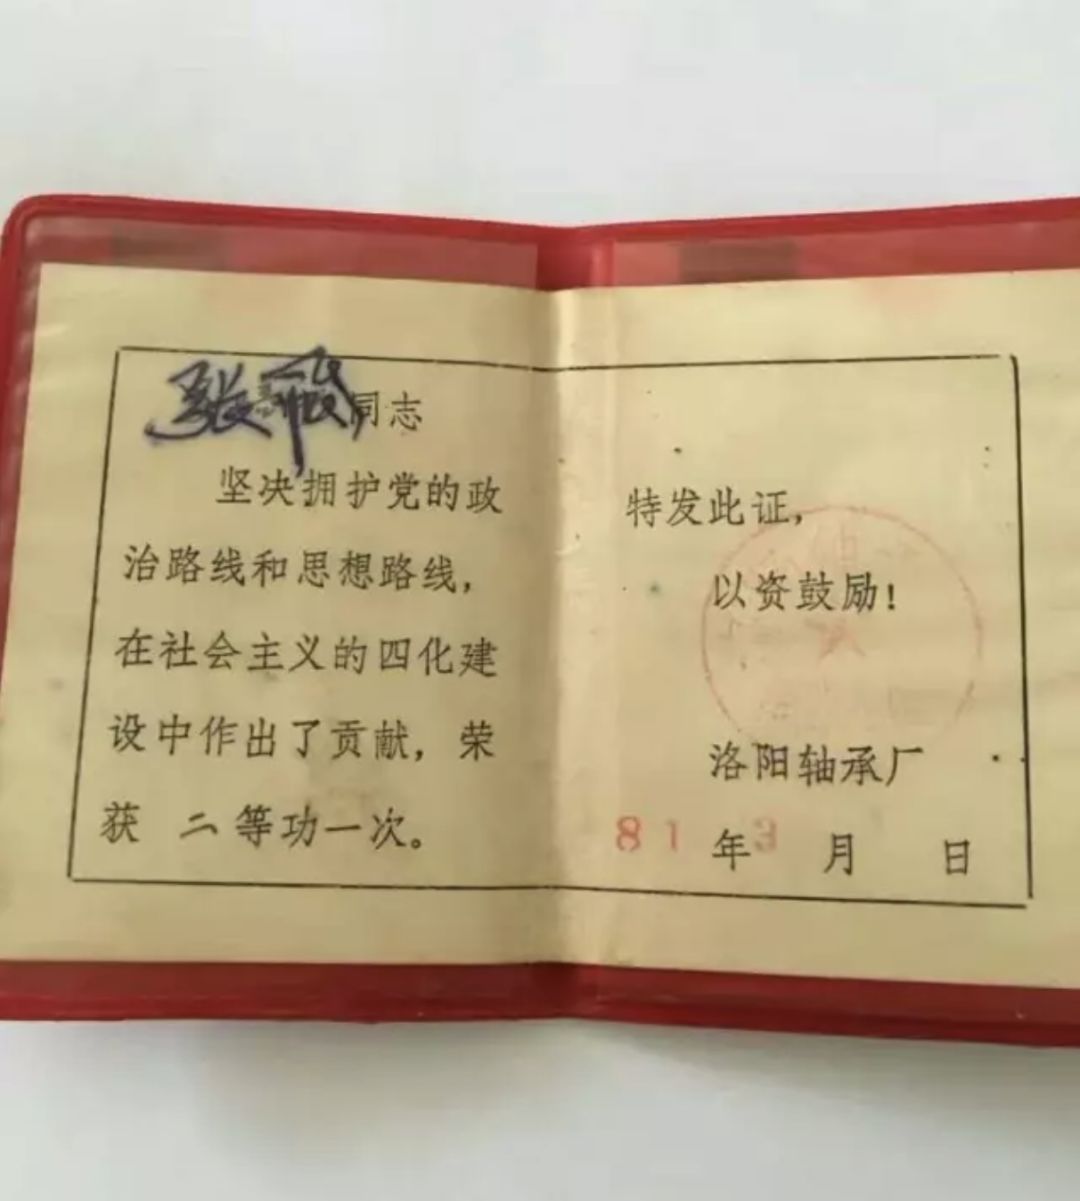 张 同志
坚决拥护党的政
治路线和思想路线，
在社会主义的四化建
设中作出了贡献，荣
获 二等功一次。
特发此证，
以资鼓励！
洛阳轴承厂
81年3月 日